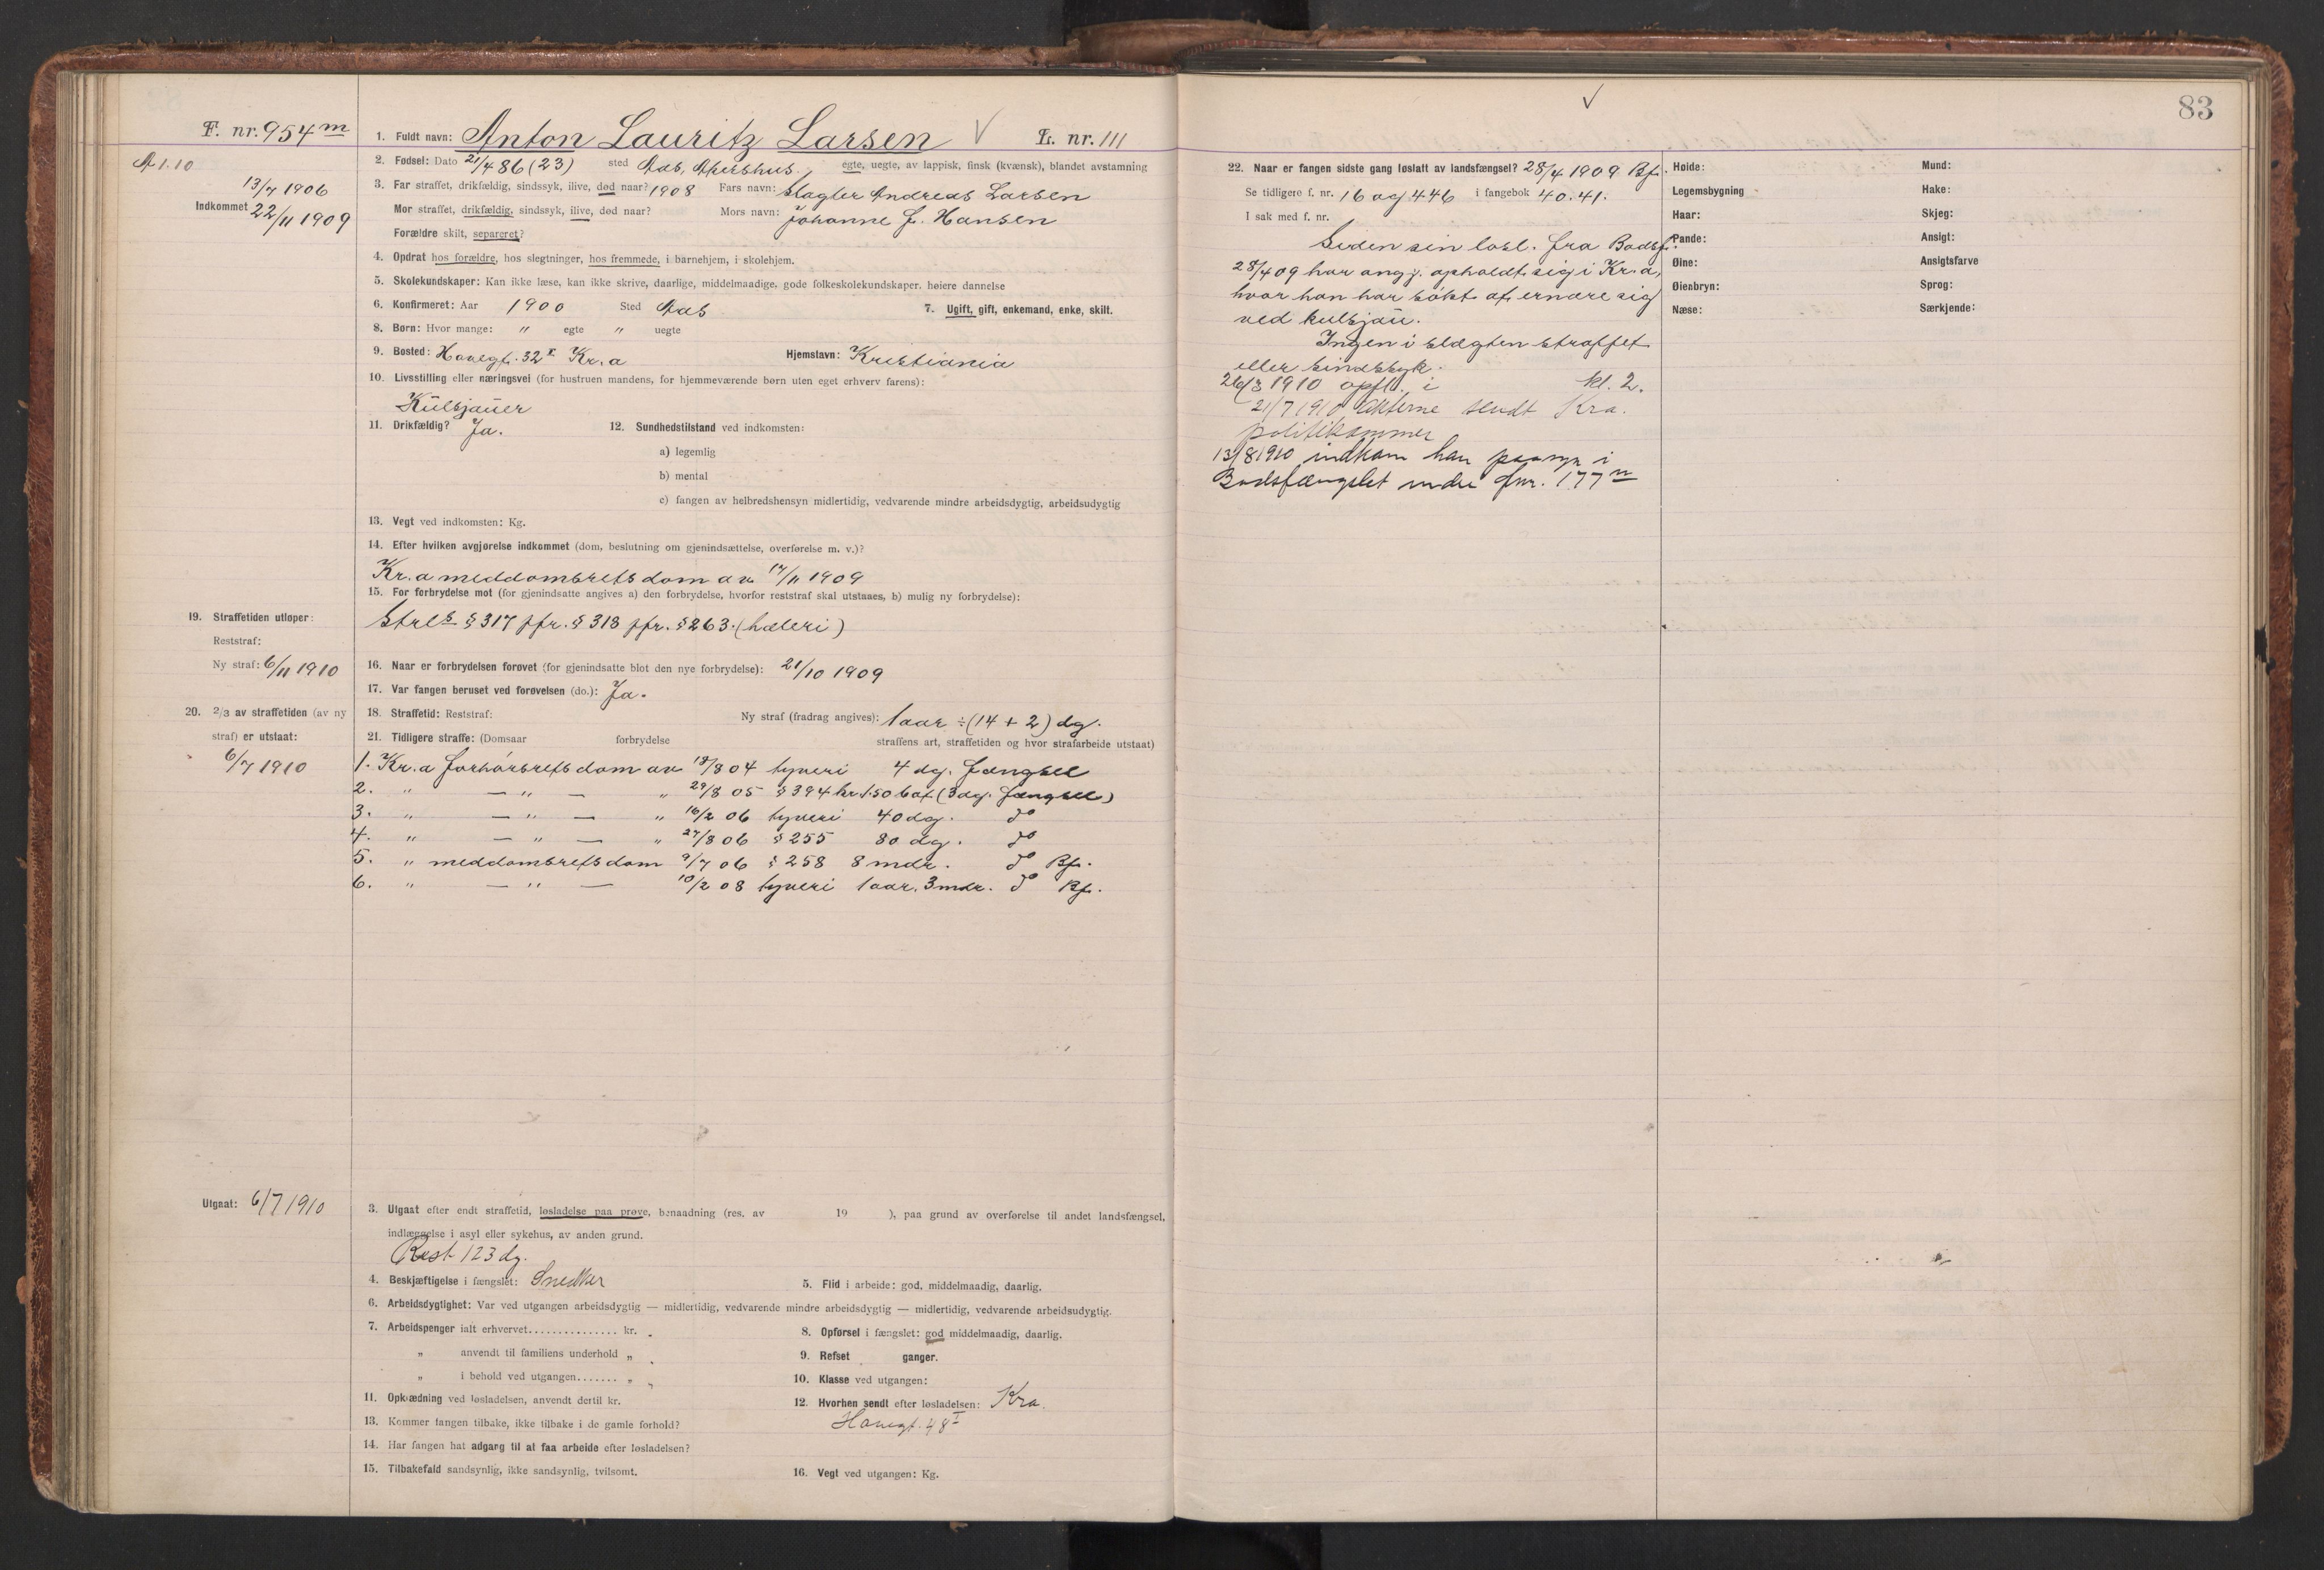 F. nr. 954 m
A 1.10
13/7 1906
Indkommet 22/11 1909
1. Fuldt navn: Anton Lauritz Larsen V L. nr. 111
2. Fødsel: Dato 21/4 86 (23) sted Aas, Akershus. egte, uegte, av lappisk, finsk (kvænsk), blandet avstamning
3. Far straffet, drikfældig, sindssyk, ilive, død naar? 1908 Fars navn: Slagter Andreas Larsen
Mor straffet, drikfældig, sindssyk, ilive, død naar? Mors navn: Johanne J. Hansen
Forældre skilt, separeret?
4. Opdrat hos forældre, hos slegtninger, hos fremmede, i barnehjem, i skolehjem.
5. Skolekundskaper: Kan ikke læse, kan ikke skrive, daarlige, middelmaadige, gode folkeskolekundskaper, høiere dannelse
6. Konfirmeret: Aar 1900 Sted Aas 7. Ugift, gift, enkemand, enke, skilt.
8. Børn: Hvor mange: " egte " uegte
9. Bosted: Havegt. 32 II Kr.a Hjemstavn: Kristiania
10. Livsstilling eller næringsvei (for hustruen mandens, for hjemmeværende børn uten eget erhverv farens):
Kulsjauer
11. Drikfældig? Ja. 12. Sundhedstilstand ved indkomsten:
a) legemlig
b) mental
c) fangen av helbredshensyn midlertidig, vedvarende mindre arbeidsdygtig, arbeidsudygtig
13. Vegt ved indkomsten: Kg.
14. Efter hvilken avgjørelse indkommet (dom, beslutning om gjenindsættelse, overførelse m. v.)?
Kr.a meddomsrets dom av 17/11 1909
15. For forbrydelse mot (for gjenindsatte angives a) den forbrydelse, hvorfor reststraf skal utstaaes, b) mulig ny forbrydelse):
Strls § 317 jfr. § 318 jfr. § 263. (hæleri)
19. Straffetiden utløper:
Reststraf:
Ny straf: 6/11 1910
16. Naar er forbrydelsen forøvet (for gjenindsatte blot den nye forbrydelse): 21/10 1909
17. Var fangen beruset ved forøvelsen (do.): Ja.
20. 2/3 av straffetiden (av ny straf) er utstaat:
6/7 1910
18. Straffetid: Reststraf: Ny straf (fradrag angives): 1 aar ÷ (14 + 2) dg.
21. Tidligere straffe: (Domsaar forbrydelse straffens art, straffetiden og hvor strafarbeide utstaat)
1. Kr.a Forhørsrets dom av 18/8 04 tyveri 4 dg. Fængsel
2. " — " — " 29/8 05 § 394 kr 1.50 bot (3 dg. fængsel)
3. " — " — " 16/2 06 tyveri 40 dg. do
4. " — " — " 27/8 06 § 255 80 dg. do
5. " meddomsrets dom 9/7 06 § 258 8 mdr. do Bf.
6. " — " — 10/2 08 tyveri 1 aar. 3 mdr. do Bf.
Utgaat: 6/7 1910
3. Utgaat efter endt straffetid, løsladelse paa prøve, benaadning (res. av 19 ), paa grund av overførelse til andet landsfængsel,
indlæggelse i asyl eller sykehus, av anden grund.
Rest 123 dg.
4. Beskjæftigelse i fængslet: Snedker 5. Flid i arbeide: god, middelmaadig, daarlig.
6. Arbeidsdygtighet: Var ved utgangen arbeidsdygtig — midlertidig, vedvarende mindre arbeidsdygtig — midlertidig, vedvarende arbeidsudygtig.
7. Arbeidspenger ialt erhvervet............... kr. 8. Opførsel i fængslet: god middelmaadig, daarlig.
" anvendt til familiens underhold " 9. Refset ganger.
" i behold ved utgangen....... " 10. Klasse ved utgangen:
11. Opklædning ved løsladelsen, anvendt dertil kr. 12. Hvorhen sendt efter løsladelsen: Kra.
13. Kommer fangen tilbake, ikke tilbake i de gamle forhold? Havegt. 48 I
14. Har fangen hat adgang til at faa arbeide efter løsladelsen?
15. Tilbakefald sandsynlig, ikke sandsynlig, tvilsomt. 16. Vegt ved utgangen: Kg.
V
83
22. Naar er fangen sidste gang løslatt av landsfængsel? 28/4 1909 Bf.
Se tidligere f. nr. 16 og 446 i fangebok 40. 41.
I sak med f. nr.
Siden sin løsl. fra Bodsf.
28/4 09 har angj. opholdt sig i Kr.a,
hvor han har søkt at ernære sig
ved kulsjau.
Ingen i slægten straffet
eller sindssyk.
26/3 1910 opfl. i kl. 2.
21/7 1910 Akterne sendt Kra.
politikammer
13/8 1910 indkom han paany i
Bodsfængslet under fnr. 177 n
Høide:
Legemsbygning
Haar:
Pande:
Øine:
Øienbryn:
Næse:
Mund:
Hake:
Skjeg:
Ansigt:
Ansigtsfarve
Sprog:
Særkjende: